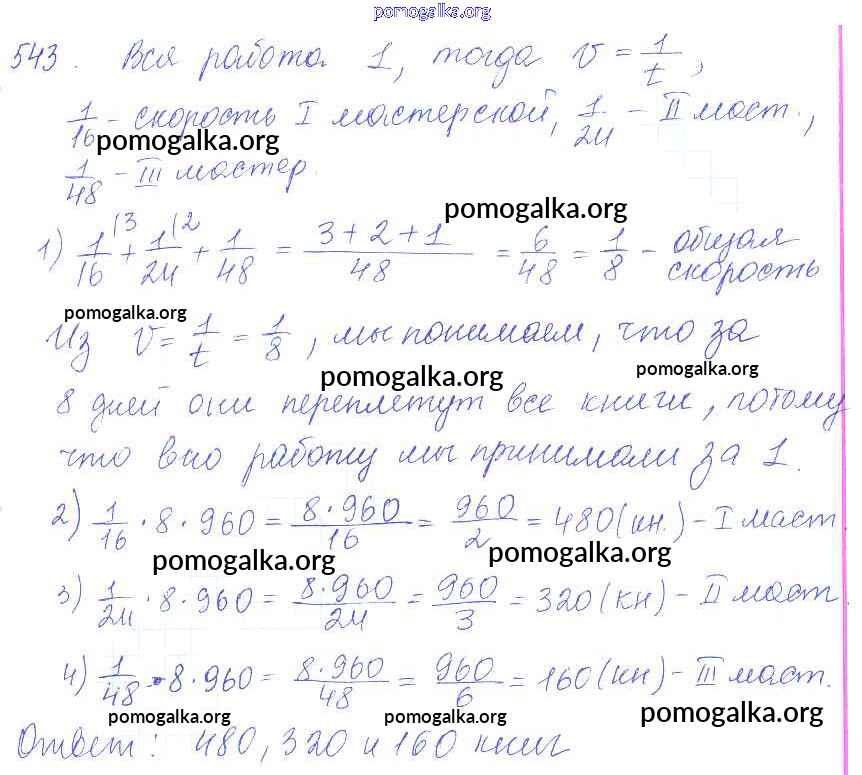 pomogalka.org
543. Вся работа 1, тогда v = 1/t,
1/16 - скорость I мастерской, 1/24 - II маст.,
pomogalka.org
1/48 - III мастер.
pomogalka.org
1) 1/16 |3 + 1/24 |2 + 1/48 = 3+2+1/48 = 6/48 = 1/8 - общая скорость
pomogalka.org
Из v = 1/t = 1/8, мы понимаем, что за
pomogalka.org pomogalka.org
8 дней они переплетут все книги, потому
что всю работу мы принимали за 1.
2) 1/16 · 8 · 960 = 8·960/16 = 960/2 = 480 (кн.) - I маст.
pomogalka.org pomogalka.org
3) 1/24 · 8 · 960 = 8·960/24 = 960/3 = 320 (кн) - II маст
pomogalka.org
4) 1/48 · 8 · 960 = 8·960/48 = 960/6 = 160 (кн) - III маст.
pomogalka.org pomogalka.org pomogalka.org
Ответ: 480, 320 и 160 книг